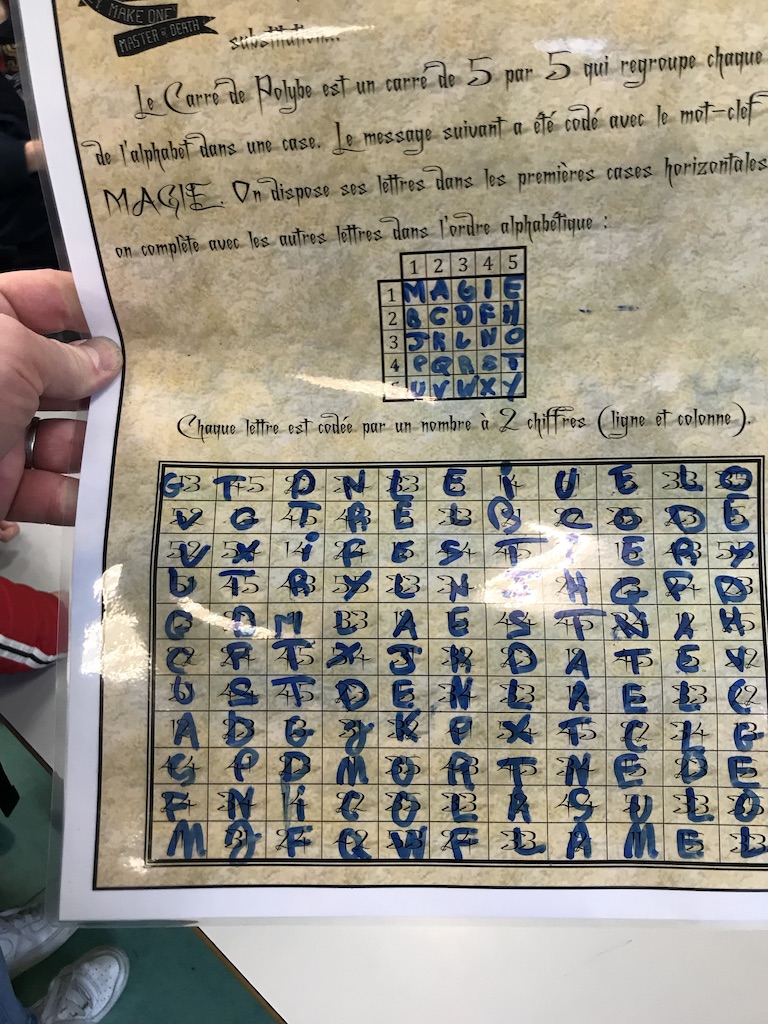 Y MAKE ONE
MASTER OF DEATH
substitution...
Le Carré de Polybe est un carré de 5 par 5 qui regroupe chaque
de l'alphabet dans une case. Le message suivant a été codé avec le mot-clef
MAGIE. On dispose ses lettres dans les premières cases horizontales
on complète avec les autres lettres dans l'ordre alphabétique :
1 2 3 4 5
1 M A G I E
2 B C D F H
3 J K L N O
4 P Q R S T
U V W X Y
Chaque lettre est codée par un nombre à 2 chiffres (ligne et colonne).
G T D N L E i U E L O
V O T R E L B C O D E
V X i F E S T E R Y
U T R Y L N H G P D
G D M L A E S T N A H
C P T X J K D A T E V
U S T D E N L A E L C
A D G J K F X T C L G
S P D M O R T N E D E
F N i C O L A S U L O
M J F Q W F L A M E L